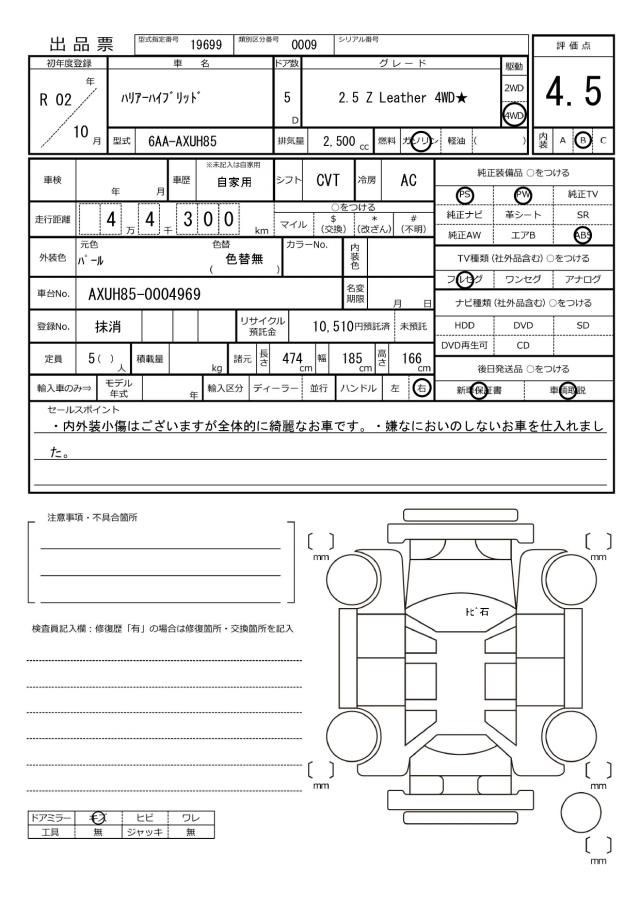 出品票 型式指定番号 19699 類別区分番号 0009 シリアル番号
評価点
4.5
初年度登録 車名 ドア数 グレード 駆動
R 02 年 10 月 ﾊﾘｱｰﾊｲﾌﾞﾘｯﾄﾞ 5 D 2.5 Z Leather 4WD★ 2WD 4WD
型式 6AA-AXUH85 排気量 2,500 cc 燃料 ガソリン 軽油 ( ) 内装 A B C
車検 年 月 車歴 ※未記入は自家用 自家用 シフト CVT 冷房 AC
走行距離 4 万 4 千 3 0 0 km
○をつける
マイル $(交換) *(改ざん) #(不明)
外装色 元色 ﾊﾟｰﾙ 色替 ( 色替無 ) カラーNo. 内装色
車台No. AXUH85-0004969 名変期限 月 日
登録No. 抹消 リサイクル預託金 10,510円預託済 未預託
定員 5( )人 積載量 kg 諸元 長さ 474 cm 幅 185 cm 高さ 166 cm
輸入車のみ⇒ モデル年式 年 輸入区分 ディーラー 並行 ハンドル 左 右
純正装備品 ○をつける
PS PW 純正TV
純正ナビ 革シート SR
純正AW エアB ABS
TV種類(社外品含む)○をつける
フルセグ ワンセグ アナログ
ナビ種類(社外品含む)○をつける
HDD DVD SD
DVD再生可 CD
後日発送品 ○をつける
新車保証書 車輌取説
セールスポイント
・内外装小傷はございますが全体的に綺麗なお車です。・嫌なにおいのしないお車を仕入れまし
た。
注意事項・不具合箇所
検査員記入欄：修復歴「有」の場合は修復箇所・交換箇所を記入
〔 〕mm 〔 〕mm
ﾄﾋﾞ石
〔 〕mm 〔 〕mm
〔 〕mm
ドアミラー キズ ヒビ ワレ
工具 無 ジャッキ 無